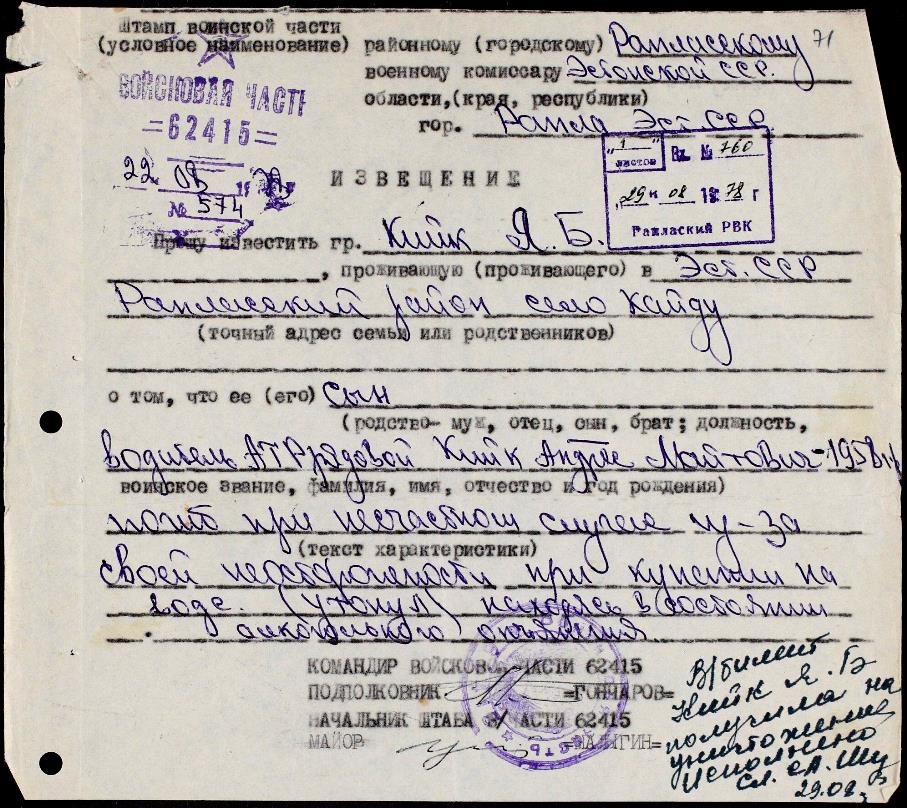 Штамп воинской части
(условное наименование) районному (городскому) Рапласскому 71
военному комиссару Эстонской ССР.
ВОЙСКОВАЯ ЧАСТЬ
области,(края, республики)
=62415=
гор. Рапла Эст. ССР
„1" листов Вх. № 760
22 08 19
ИЗВЕЩЕНИЕ
„29" 08 1978 г
№ 574
Раплаский РВК
Прошу известить гр. Кийк Я. Б.
, проживающую (проживающего) в Эст. ССР
Рапласский район село Кайду
(точный адрес семьи или родственников)
о том, что ее (его) сын
(родство- муж, отец, сын, брат; должность,
водитель АТР рядовой Кийк Андре Майтович-1958 г.р
воинское звание, фамилия, имя, отчество и год рождения)
погиб при несчастном случае из-за
(текст характеристики)
своей неосторожности при купании на
воде. (утонул) находясь в состоянии
алкогольного опьянения
КОМАНДИР ВОЙСКОВ. ЧАСТИ 62415
ПОДПОЛКОВНИК =ГОНЧАРОВ=
НАЧАЛЬНИК ШТАБА В/ЧАСТИ 62415
МАЙОР =МАЛЫГИН=
В/билет
Кийк Я. Б
получила на
уничтожение
Исполнено
29.08.